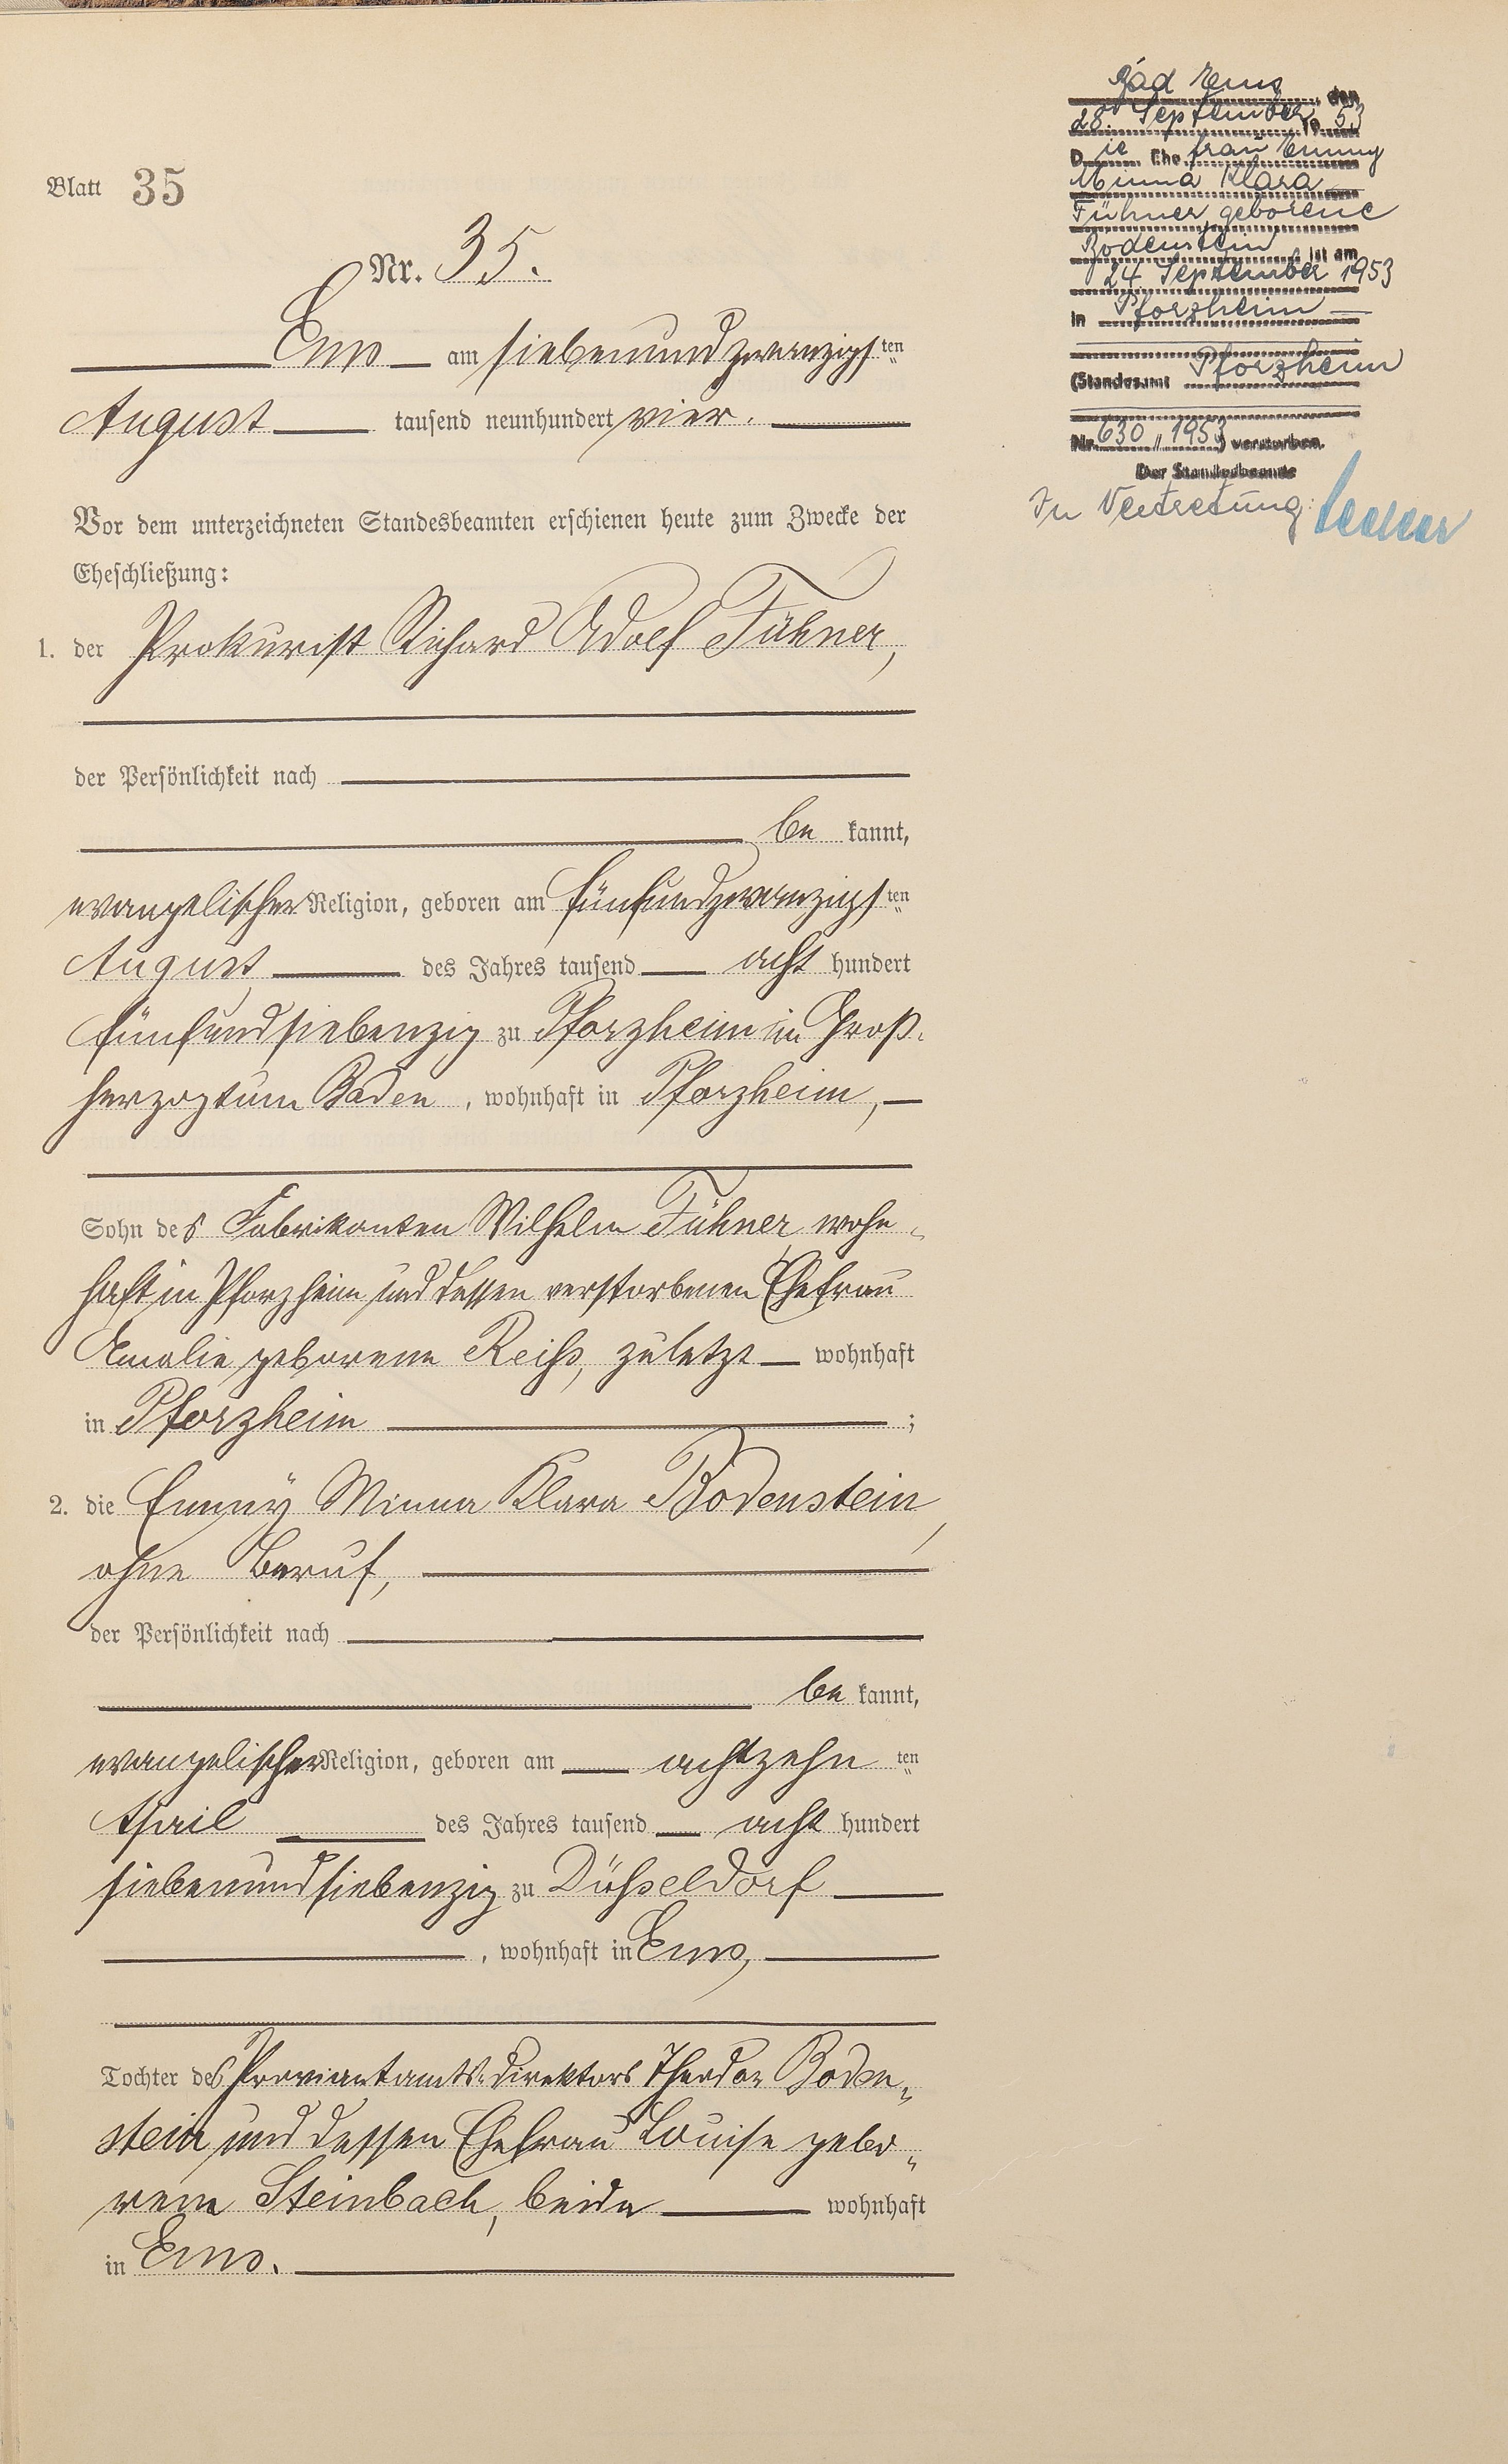 Blatt 35
Nr. 35.
Ems am siebenundzwanzigsten
August tausend neunhundert vier.
Vor dem unterzeichneten Standesbeamten erschienen heute zum Zwecke der
Eheschließung:
1. der Prokurist Richard Adolf Fühner,
der Persönlichkeit nach
be kannt,
evangelischer Religion, geboren am fünfundzwanzigsten
August des Jahres tausend acht hundert
fünfundsiebenzig zu Pforzheim im Groß-
herzogtum Baden, wohnhaft in Pforzheim,
Sohn des Fabrikanten Wilhelm Fühner, wohn-
haft in Pforzheim und dessen verstorbenen Ehefrau
Amalie geborene Reiß, zuletzt wohnhaft
in Pforzheim ;
2. die Emmy Minna Klara Bodenstein,
ohne Beruf,
der Persönlichkeit nach
be kannt,
evangelischer Religion, geboren am achtzehnten
April des Jahres tausend acht hundert
siebenundsiebenzig zu Düsseldorf
, wohnhaft in Ems,
Tochter des Proviantamts-Direktors Theodor Boden-
stein und dessen Ehefrau Louise gebo-
rene Steinbach, beide wohnhaft
in Ems.
Bad Ems, den
28. September 1953
Die Ehefrau Emmy
Minna Klara
Fühner, geborene
Bodenstein ist am
24. September 1953
in Pforzheim
(Standesamt Pforzheim
Nr. 630 / 1953) verstorben.
Der Standesbeamte
In Vertretung: